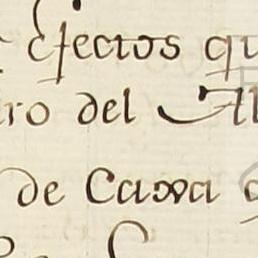 efectos qu
ro del Al
de Caxa